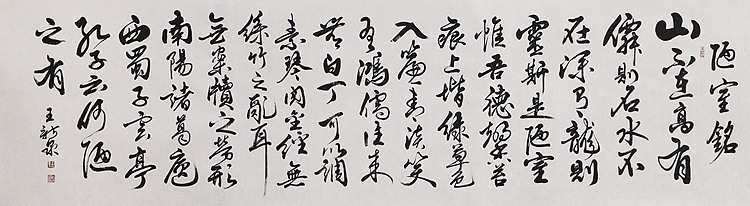 陋室銘
山不在高有
僊則名水不
在深有龍則
靈斯是陋室
惟吾德馨苔
痕上堦緑草色
入簾青談笑
有鴻儒往来
無白丁可以調
素琴閱金經無
絲竹之亂耳
無案牘之勞形
南陽諸葛廬
西蜀子雲亭
孔子云何陋
之有
王